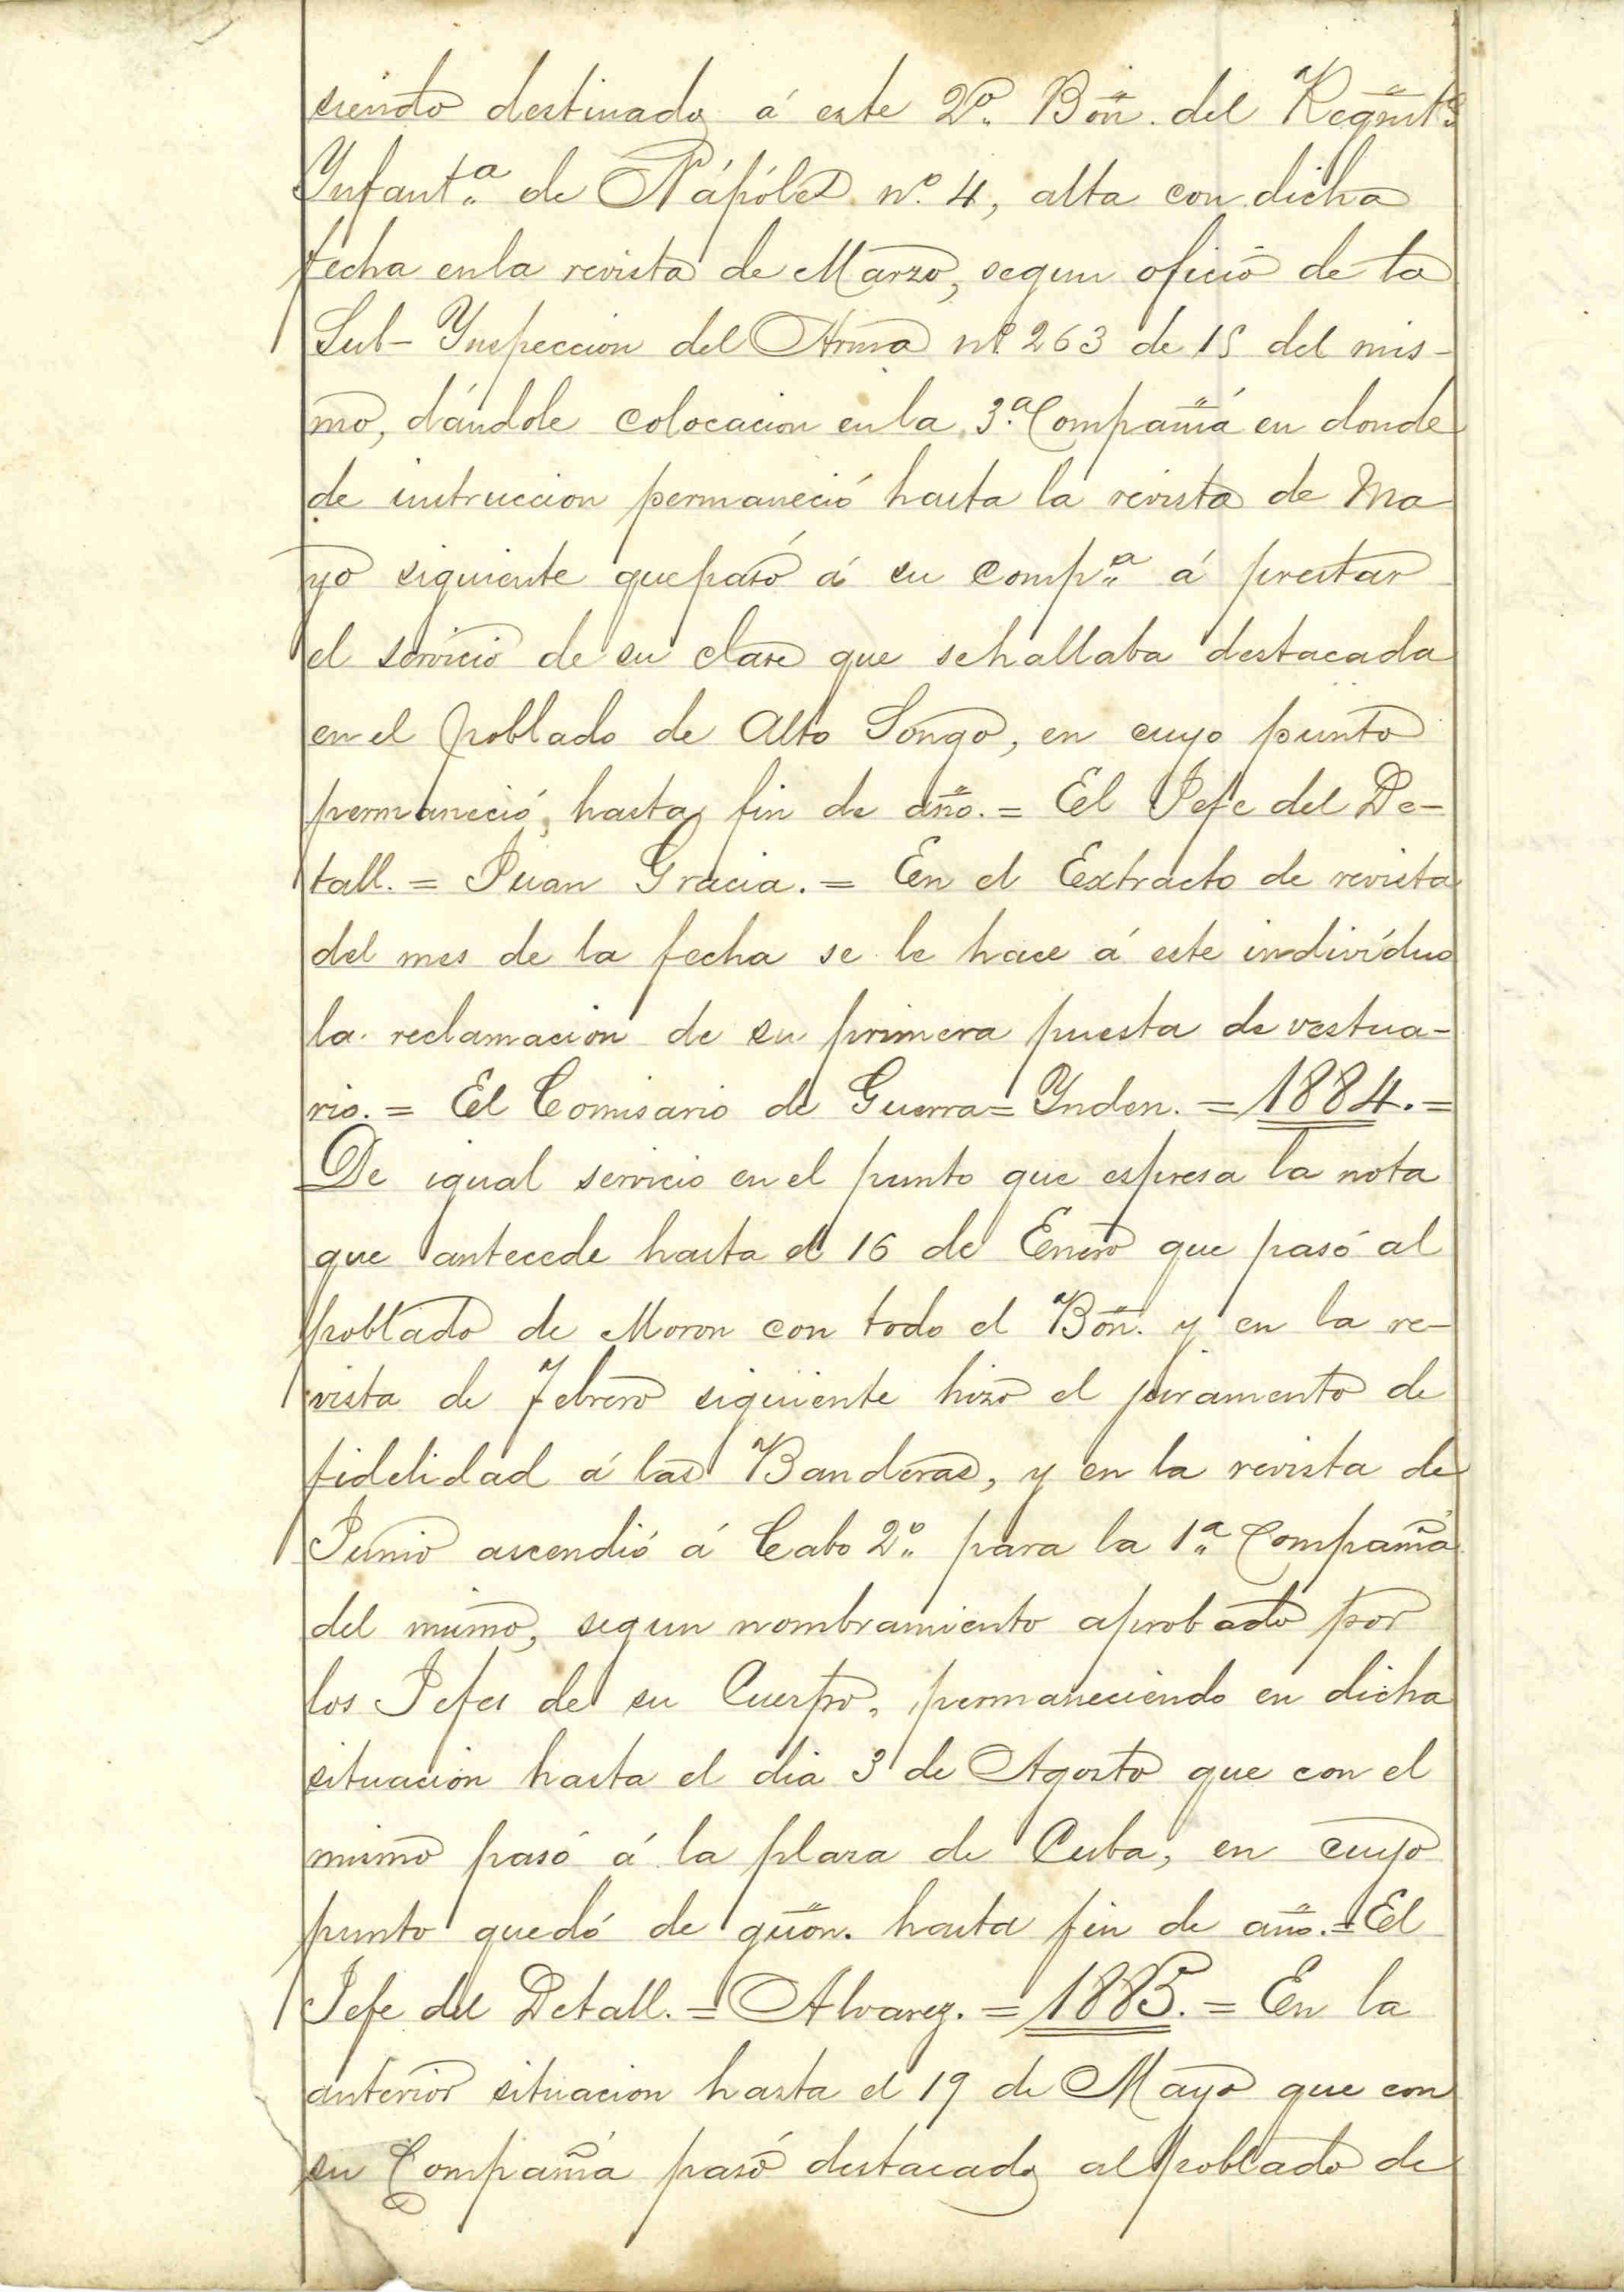 siendo destinado á este 2º Bōn. del Regmtº
Ynfantª de Nápóles nº 4, alta con dicha
fecha en la revista de Marzo, segun oficio de la
Sub-Ynspeccion del Arma nº 263 de 15 del mis-
mo, dándole colocacion en la 3ª Compañiá en donde
de instruccion permaneció hasta la revista de Ma
yo siguiente que pasó á su compª á prestar
el servicio de su clase que se hallaba destacada
en el poblado de Alto Songo, en cuyo punto
permaneció, hasta fin de año. = El Jefe del De-
tall. = Juan Gracia. = En el Extracto de revista
del mes de la fecha se le hace á este indivíduo
la reclamacion de su primera puesta de vestua-
rio. = El Comisario de Guerra = Ynden. = 1884. =
De igual servicio en el punto que espresa la nota
que antecede hasta el 16 de Enero que pasó al
poblado de Moron con todo el Bōn. y en la re-
vista de Febrero siguiente hizo el juramento de
fidelidad á las Banderas, y en la revista de
Junio ascendió á Cabo 2º para la 1ª Compañia
del mismo, segun nombramiento aprobado por
los Jefes de su Cuerpo, permaneciendo en dicha
situacion hasta el dia 3 de Agosto que con el
mismo pasó á la plaza de Cuba, en cuyo
punto quedó de gūon. hasta fin de año. = El
Jefe del Detall. = Alvarez. = 1885. = En la
anterior situacion hasta el 19 de Mayo que con
su Compañia pasó destacado al poblado de